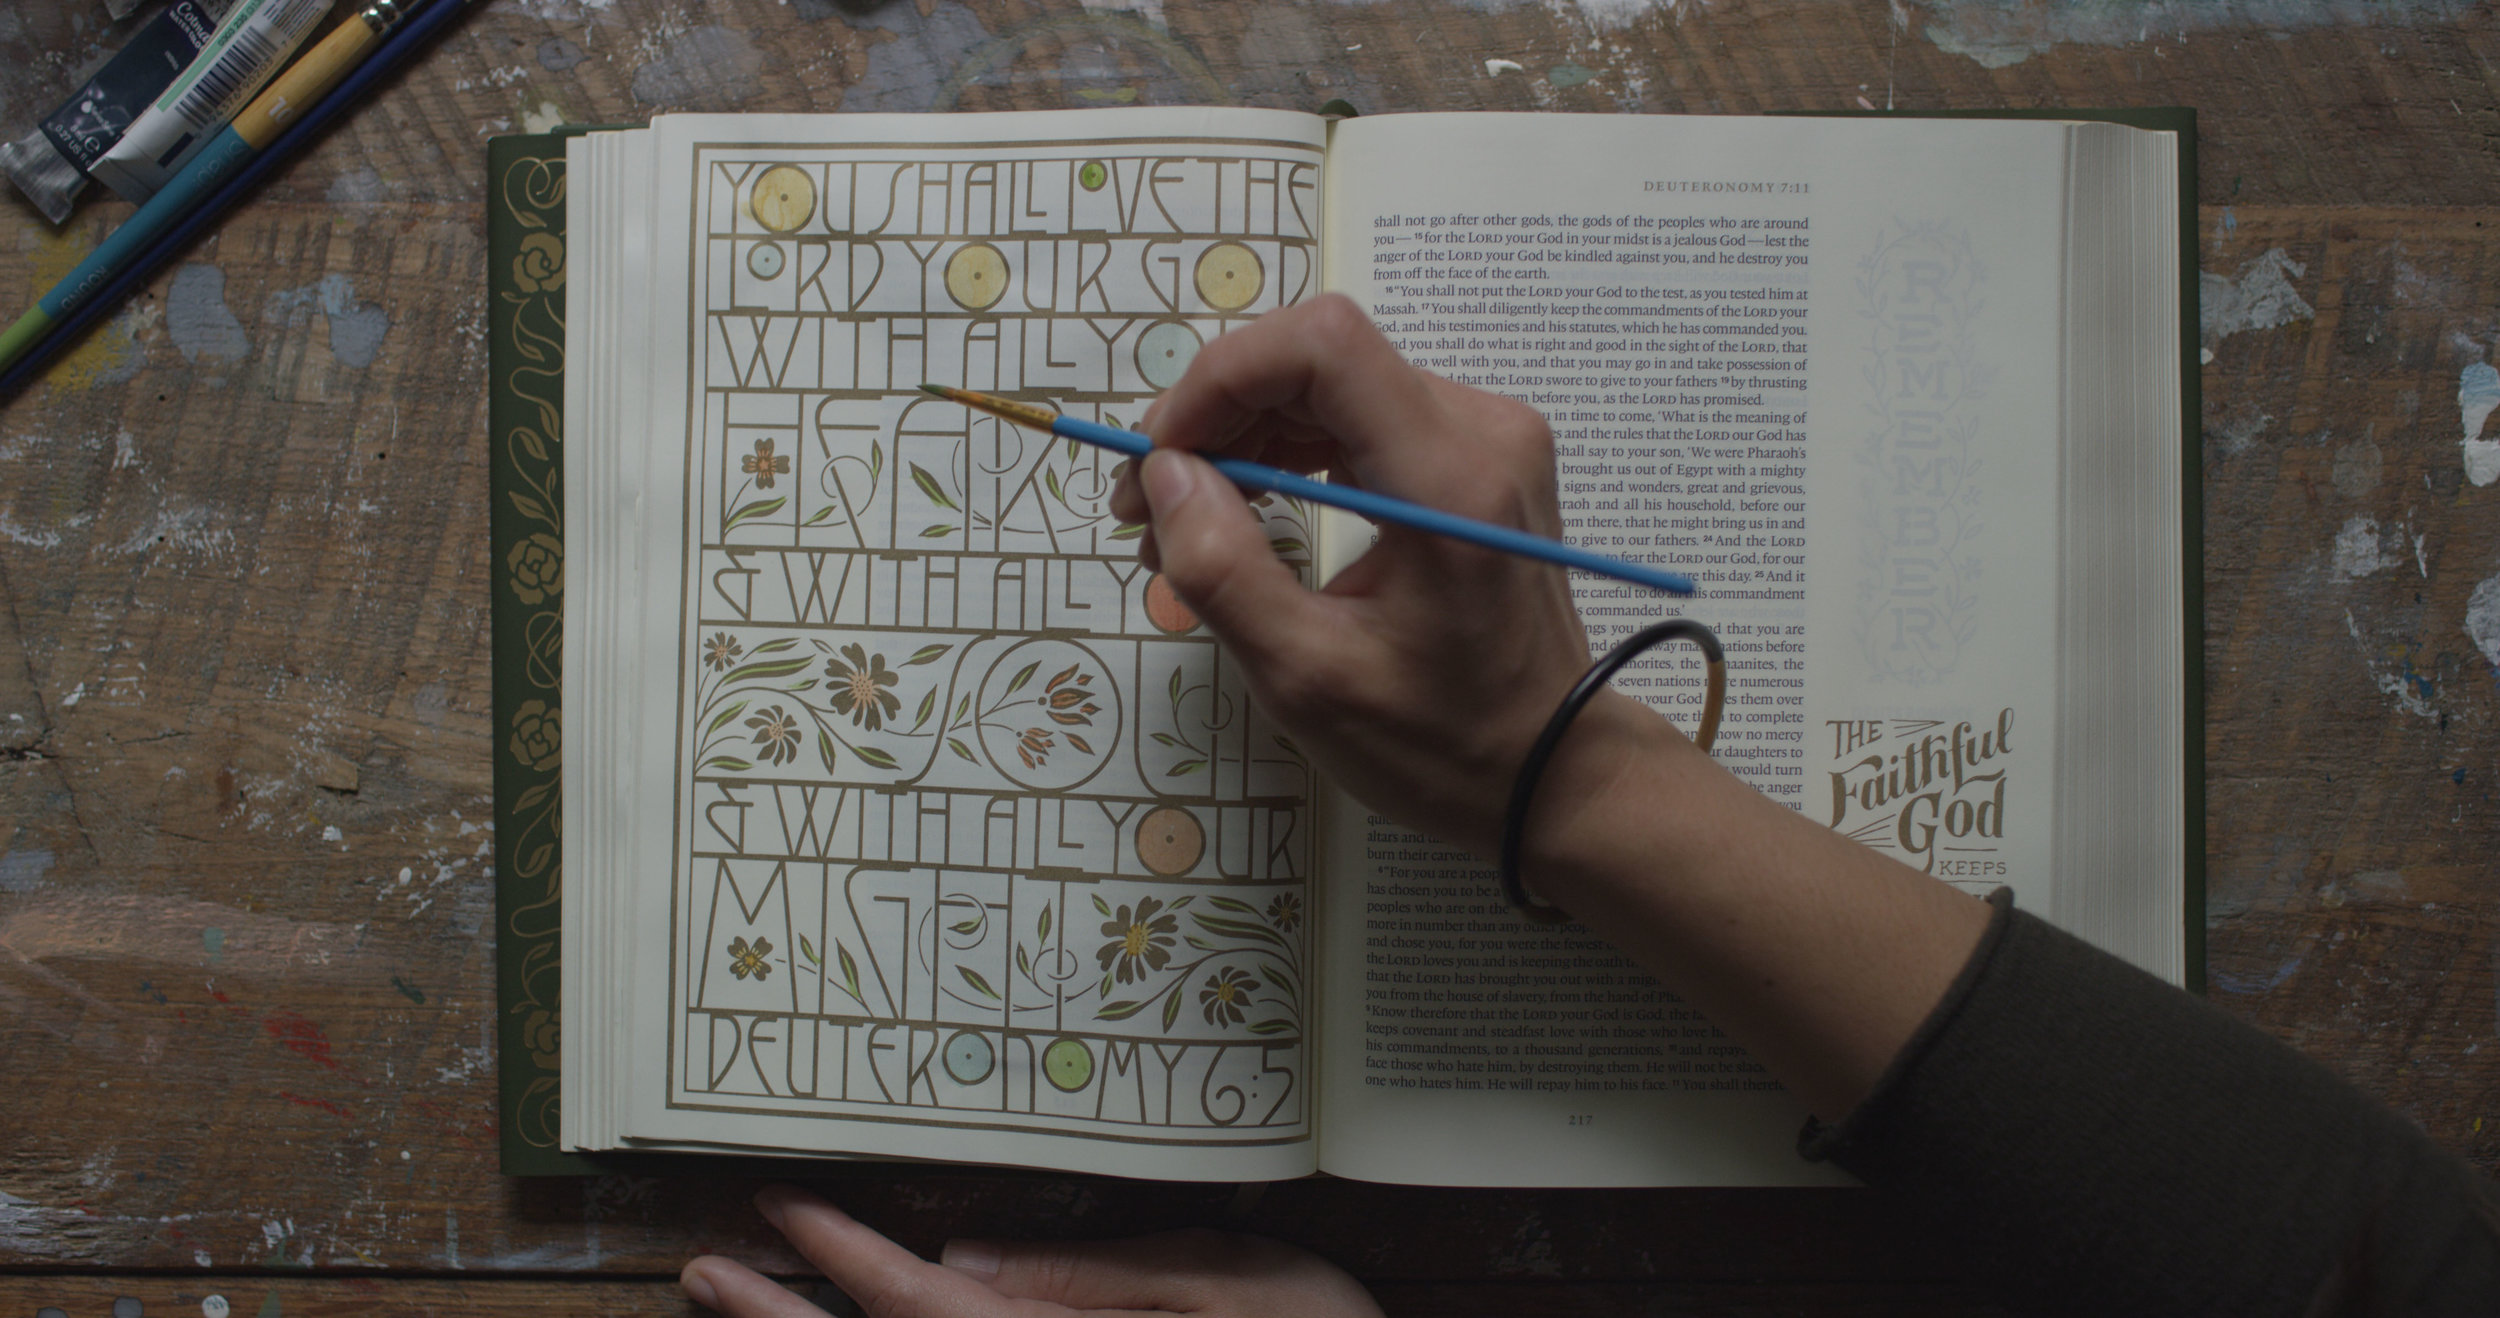 Cotman
WATER COLOUR
8 ml e
0.27 US fl oz
10
YOU SHALL LOVE THE
LORD YOUR GOD
WITH ALL
& WITH ALL
SOUL
& WITH ALL YOUR
MIGHT
DEUTERONOMY 6:5
DEUTERONOMY 7:11
shall not go after other gods, the gods of the peoples who are around
you— 15 for the LORD your God in your midst is a jealous God—lest the
anger of the LORD your God be kindled against you, and he destroy you
from off the face of the earth.
16 “You shall not put the LORD your God to the test, as you tested him at
Massah. 17 You shall diligently keep the commandments of the LORD your
God, and his testimonies and his statutes, which he has commanded you.
you shall do what is right and good in the sight of the LORD, that
go well with you, and that you may go in and take possession of
that the LORD swore to give to your fathers 19 by thrusting
from before you, as the LORD has promised.
in time to come, ‘What is the meaning of
and the rules that the LORD our God has
shall say to your son, ‘We were Pharaoh’s
brought us out of Egypt with a mighty
signs and wonders, great and grievous,
and all his household, before our
there, that he might bring us in and
to give to our fathers. 24 And the LORD
to fear the LORD our God, for our
are this day. 25 And it
are careful to do all this commandment
commanded us.’
you that you are
away nations before
the the
seven nations numerous
your God them over
to complete
no mercy
daughters to
would turn
anger
you
altars and
burn their carved
6 “For you are a
has chosen you to be a
peoples who are on the
more in number than any other
and chose you, for you were the fewest
the LORD loves you and is keeping the oath
that the LORD has brought you out with a
you from the house of slavery, from the hand of
9 Know therefore that the LORD your God is God, the
keeps covenant and steadfast love with those who love
his commandments, to a thousand generations, 10 and
face those who hate him, by destroying them. He will not be
one who hates him. He will repay him to his face. 11 You shall
217
THE
Faithful
God
KEEPS